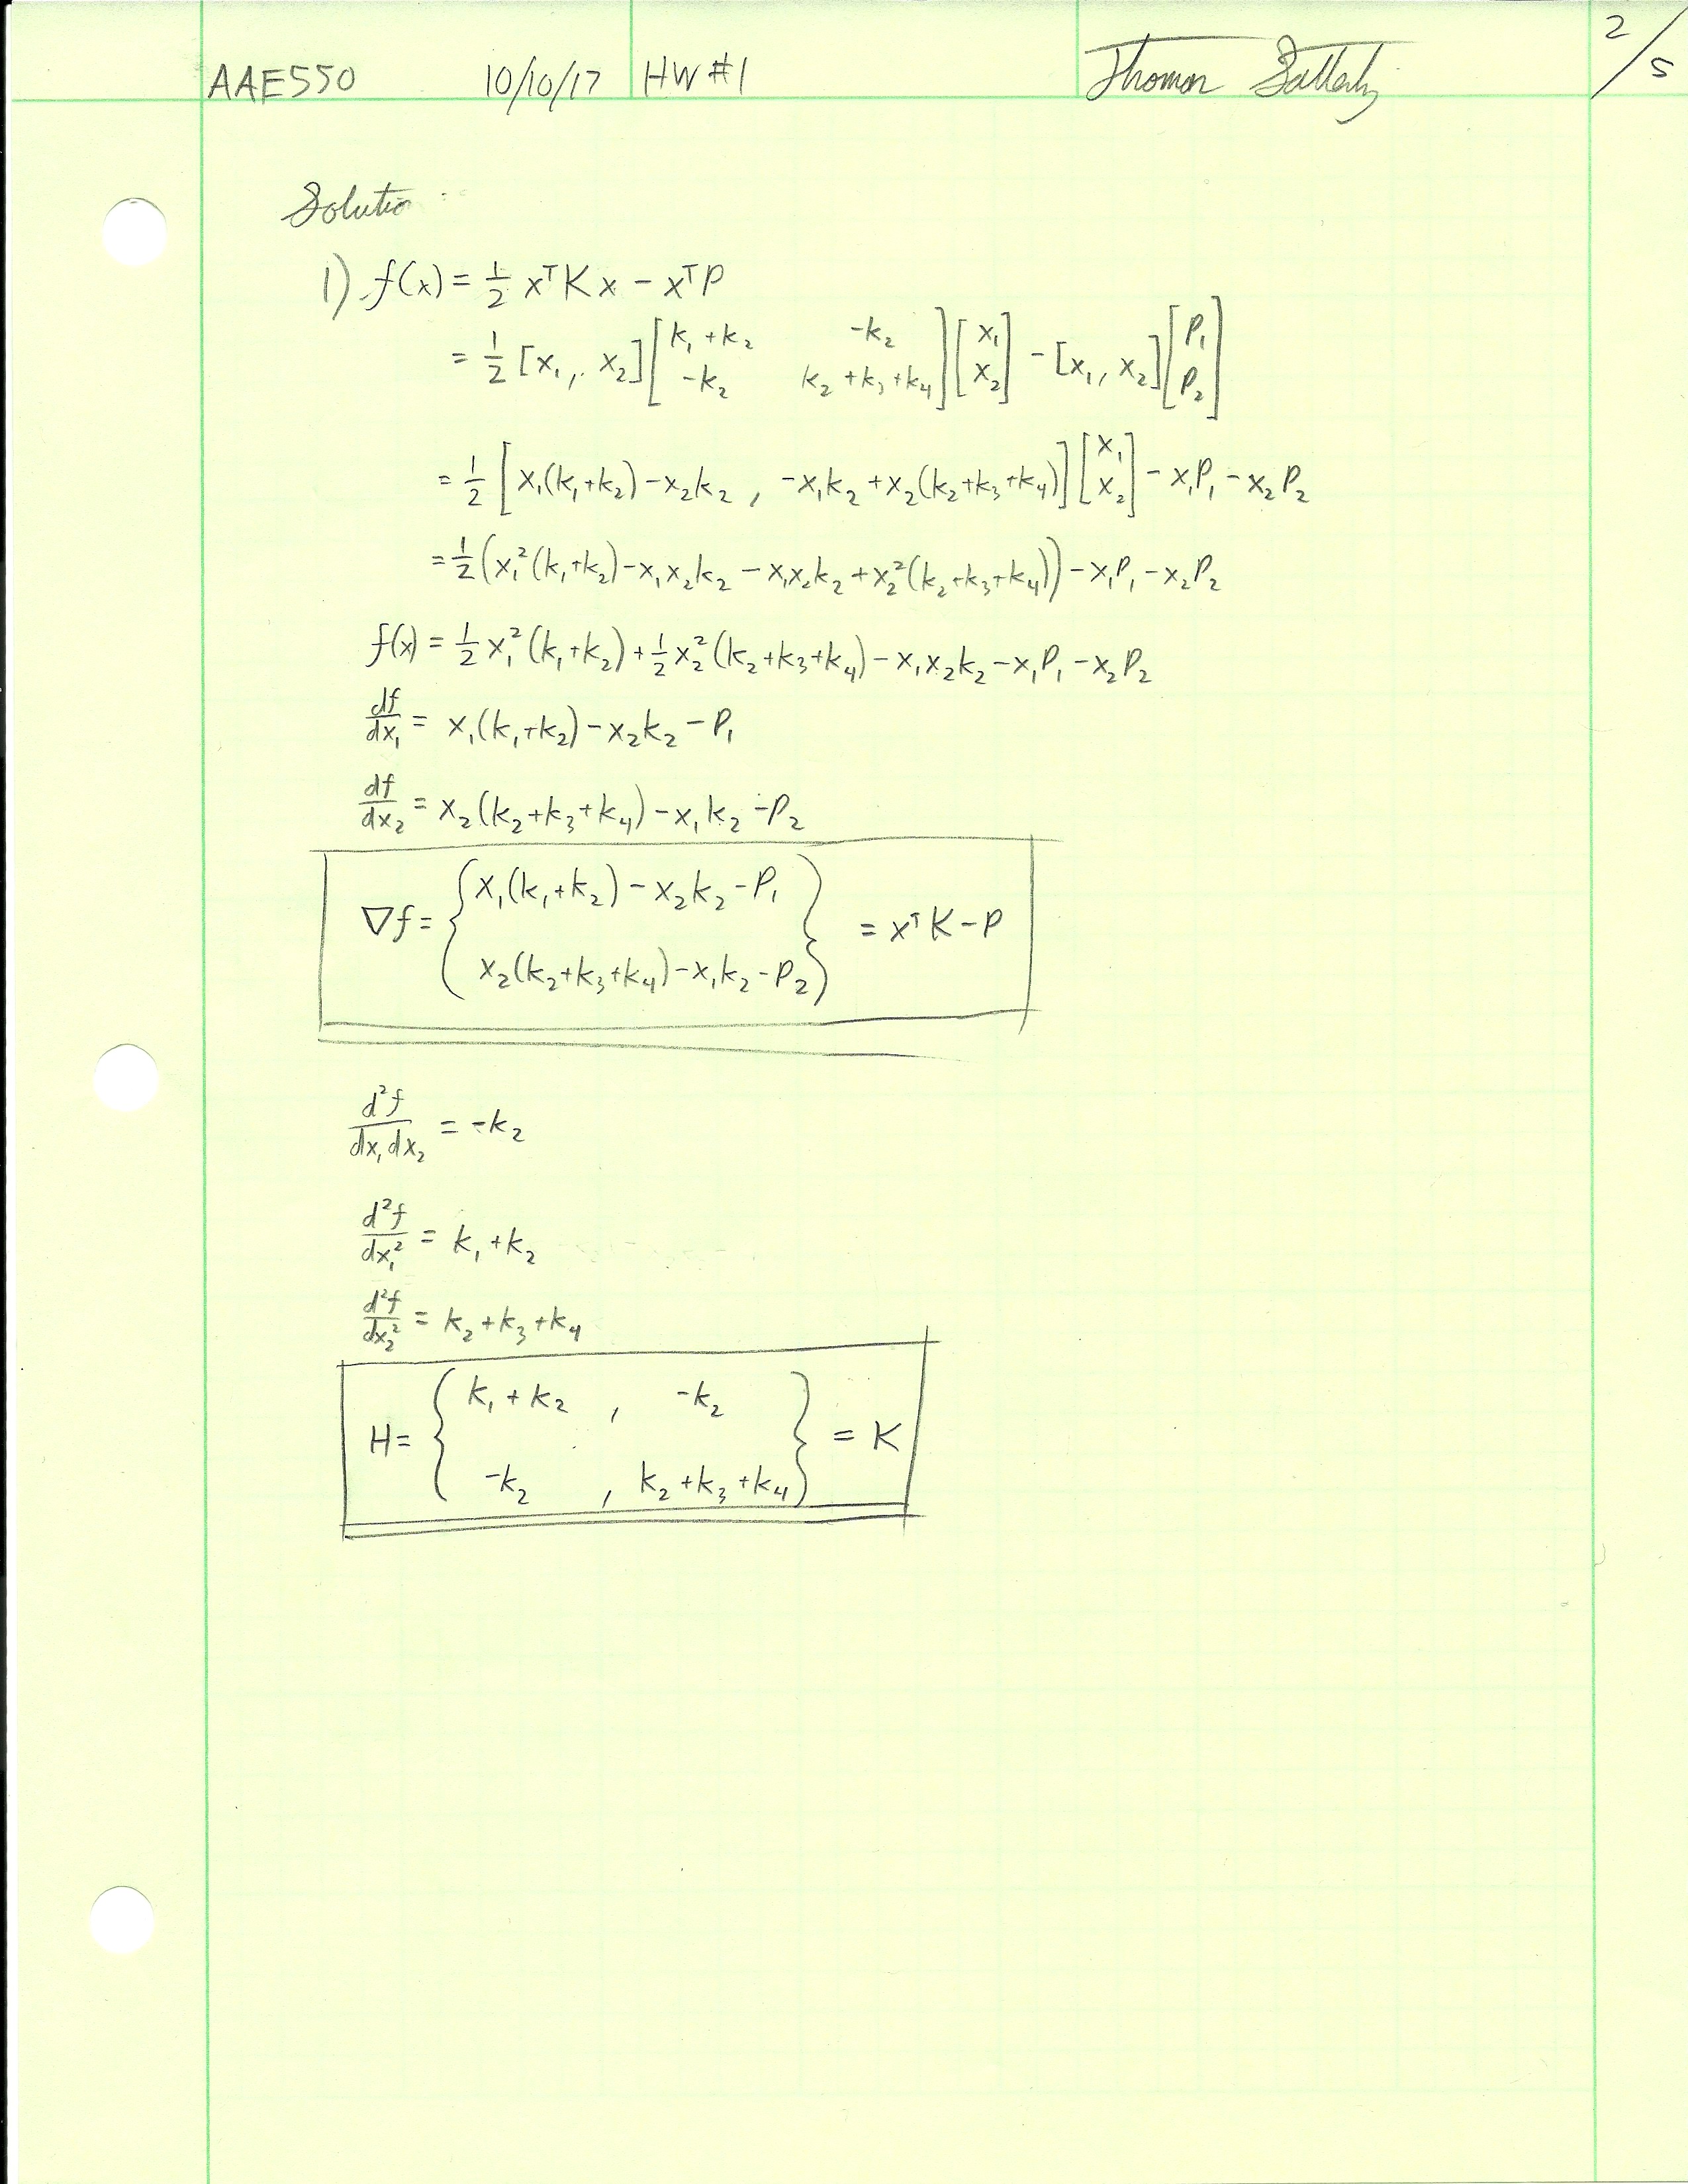 AAE550 10/10/17 HW #1 Thomas 2/5
Solution:
1) f(x) = 1/2 xᵀKx - xᵀP
= 1/2 [x₁, x₂] [k₁+k₂ -k₂; -k₂ k₂+k₃+k₄] [x₁; x₂] - [x₁, x₂] [P₁; P₂]
= 1/2 [x₁(k₁+k₂)-x₂k₂ , -x₁k₂+x₂(k₂+k₃+k₄)] [x₁; x₂] - x₁P₁ - x₂P₂
= 1/2 (x₁²(k₁+k₂)-x₁x₂k₂ - x₁x₂k₂+x₂²(k₂+k₃+k₄)) - x₁P₁ - x₂P₂
f(x) = 1/2 x₁²(k₁+k₂)+1/2 x₂²(k₂+k₃+k₄)-x₁x₂k₂-x₁P₁-x₂P₂
df/dx₁ = x₁(k₁+k₂)-x₂k₂-P₁
df/dx₂ = x₂(k₂+k₃+k₄)-x₁k₂-P₂
∇f= {x₁(k₁+k₂)-x₂k₂-P₁
x₂(k₂+k₃+k₄)-x₁k₂-P₂} = xᵀK-P
d²f/dx₁dx₂ = -k₂
d²f/dx₁² = k₁+k₂
d²f/dx₂² = k₂+k₃+k₄
H= {k₁+k₂ , -k₂
-k₂ , k₂+k₃+k₄} = K